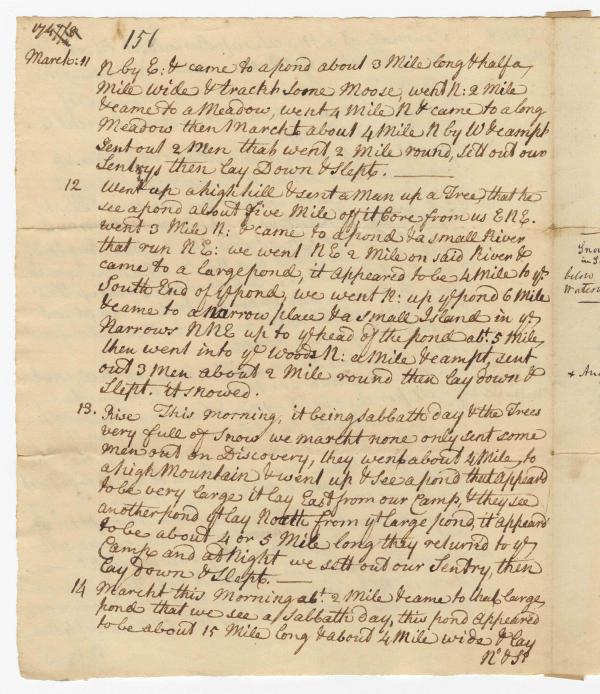 1747/8
151
March: 11
N by E: & came to a pond about 3 Mile long & half a
Mile wide & trackt some Moose, went N: 2 Mile
& came to a Meadow, went 4 Mile N & came to a long
Meadow then March t about 4 Mile N by W & campt
Sent out 2 Men that went 2 Mile round, sett out our
Sentrys then lay Down & Slept.
12 Went up a high hill & sent a Man up a Tree, that he
see a pond about five Mile off it Bore from us ENE.
went 3 Mile N: & came to a pond & a small River
that run NE: we went NE 2 Mile on said River &
came to a Large pond, it appeared to be 4 Mile to ye
South End of ye pond, we went N: up ye pond 6 Mile
& came to a narrow place & a small Island in ye
Narrows NNE up to ye head of the pond abt. 5 Mile,
then went into ye Woods N: a Mile & campt, sent
out 3 Men about 2 Mile round then lay down &
Slept. it snowed.
13. Rise This morning, it being sabbath day & the Trees
very full of Snow we marcht none only sent some
men out on Discovery, they went about 4 Mile, to
a high Mountain & went up & see a pond that appeard
to be very large it lay East from our Camp, & they see
another pond yt lay North from yt large pond, it appeard
to be about 4 or 5 Mile long they returned to ye
Camp and at Night we sett out our Sentry, then
lay Down & Slept.
14 Marcht this Morning abt. 2 Mile & came to that large
pond that we see a Sabbath day, this pond appeared
to be about 15 Mile long & about 4 Mile wide & lay
No & So
below